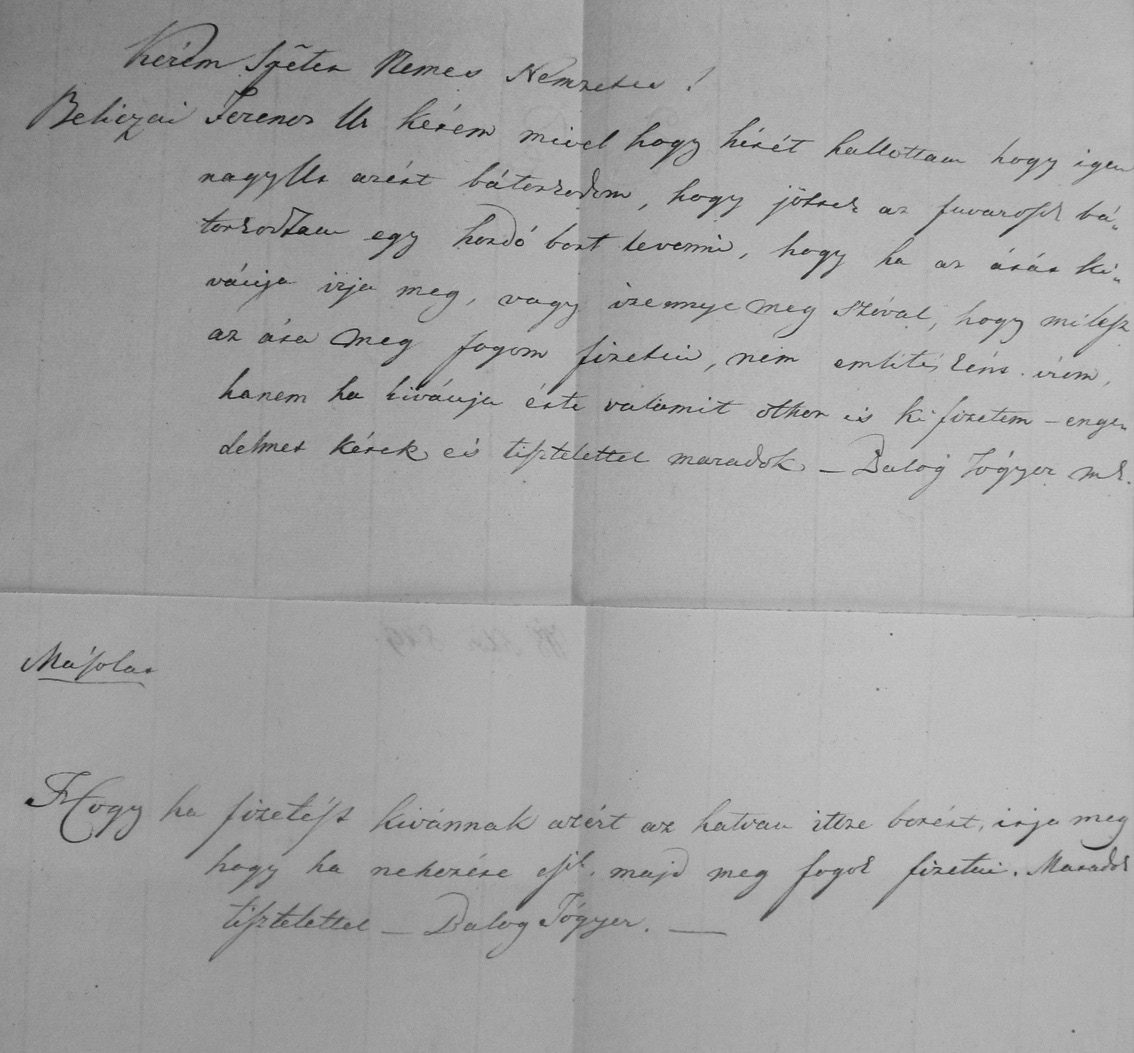 Kérem Szẽten Nemes Nemzetes!
Beliczai Ferencz Ur kérem mivel hogy hírét hallottam hogy igen
nagy Ur azért bátorkodom, hogy jöttek az fuvarosok bá„
torkodtam egy hordó bort tevenni, hogy ha az árát ki„
vánja irja meg, vagy izennye meg szóval, hogy mi lesz
az ára meg fogom fizetni, nem említés irom,
hanem ha kivánja érte valamit othon is ki fizetem – enge„
delmet kérek és tisztelettel maradok – Balog Jógyer mk.
Másolat
Hogy ha fizetést kivánnak azért az hatvan ittze borért, irja meg
hogy ha nehezére esik, majd meg fogok fizetni. Maradok
tisztelettel – Balog Jógyer. —